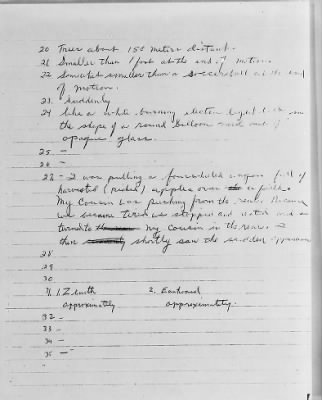 20 Trees about 150 meters distant.
21 Smaller than 1 foot at the end of motion.
22 Somewhat smaller than a soccerball at the end
of motion.
23. Suddenly
24 Like a white burning electric light bulb in
the shape of a round balloon made of
opaque glass.
25 —
26 —
27 — I was pulling a fourwheeled wagon full of
harvested (picked) apples over a field.
My cousin was pushing from the rear. Because
we became tired we stopped and rested and
turned to my cousin in the rear. I
then shortly saw the sudden appearance
28
29
30
31. 1. Zenith 2. Eastward
approximately approximately.
32 —
33 —
34 —
35 —